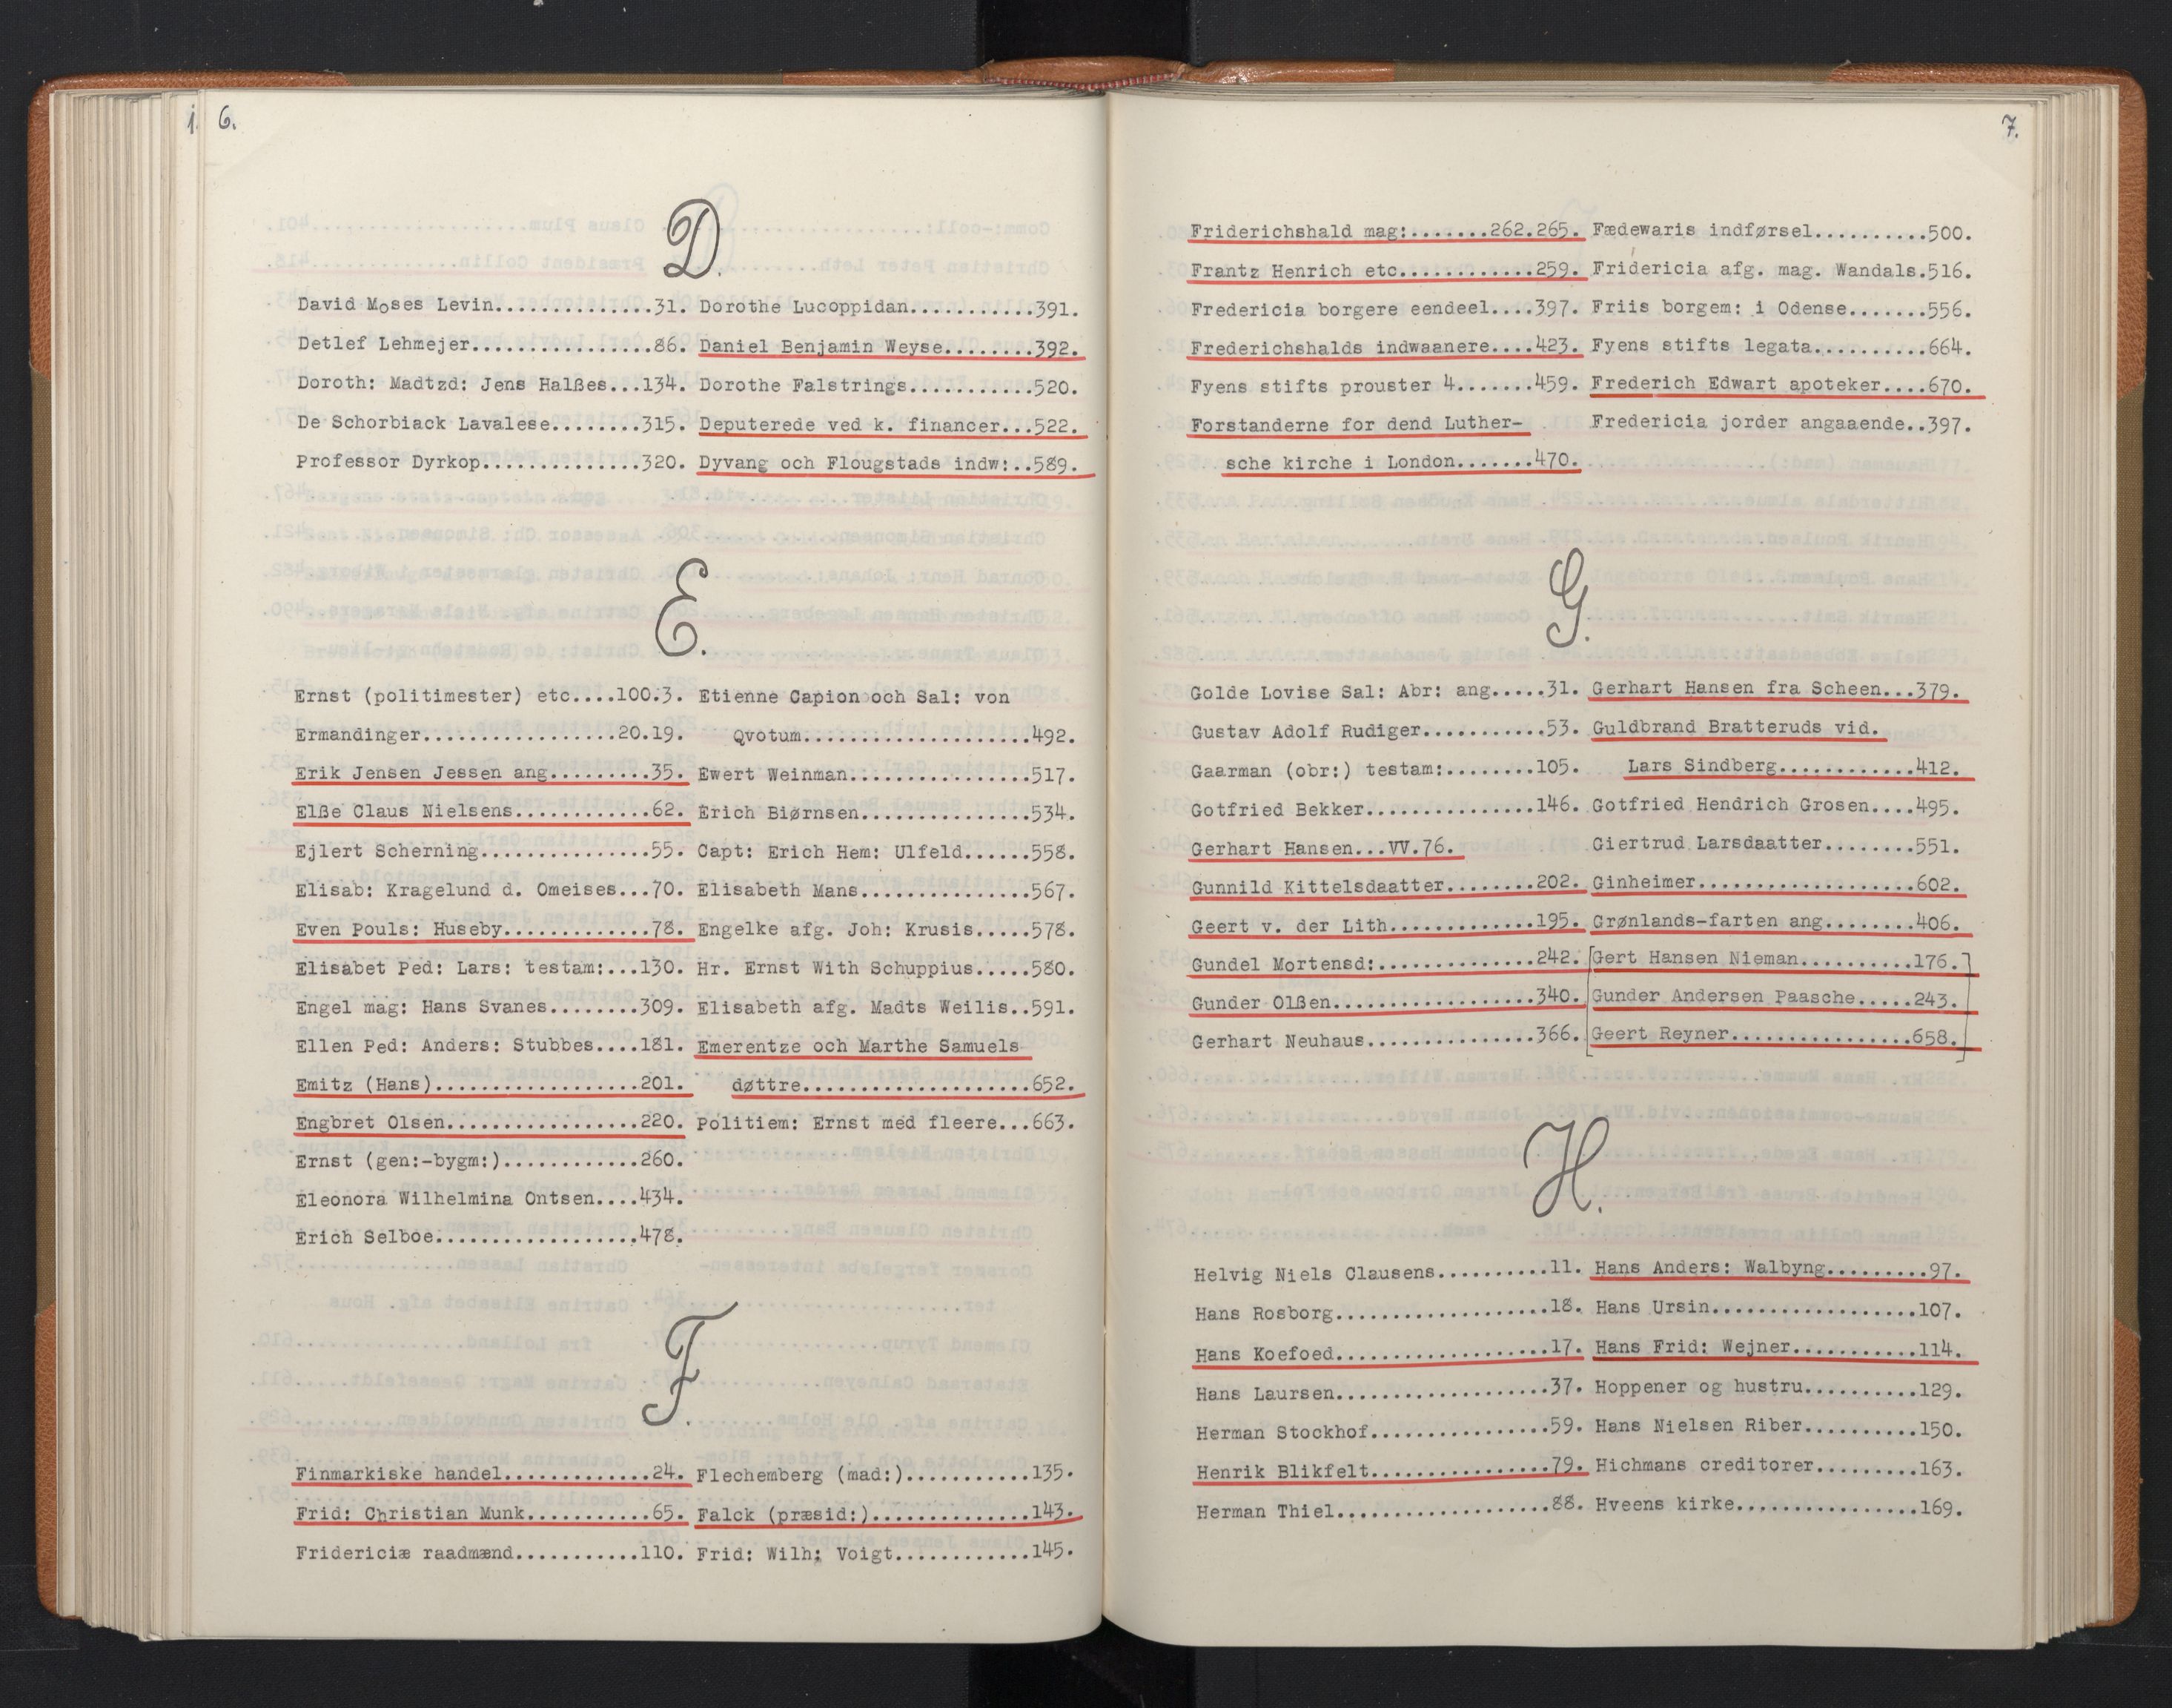 1.
6.
D.
David Moses Levin...............31.
Detlef Lehmejer.................86.
Doroth: Madtzd: Jens Halßes...134.
De Schorbiack Lavalese........315.
Professor Dyrkop...............320.
Dorothe Lucoppidan............391.
Daniel Benjamin Weyse.........392.
Dorothe Falstrings............520.
Deputerede ved k. financer...522.
Dyvang och Flougstads indw:..589.
E.
Ernst (politimester) etc....100.3.
Ermandinger..................20.19.
Erik Jensen Jessen ang.........35.
Elße Claus Nielsens............62.
Ejlert Scherning...............55.
Elisab: Kragelund d. Omeises...70.
Even Pouls: Huseby.............78.
Elisabet Ped: Lars: testam:...130.
Engel mag: Hans Svanes........309.
Ellen Ped: Anders: Stubbes....181.
Emitz (Hans)...................201.
Engbret Olsen..................220.
Ernst (gen:-bygm:)............260.
Eleonora Wilhelmina Ontsen....434.
Erich Selboe...................478.
Etienne Capion och Sal: von
Qvotum......................492.
Ewert Weinman..................517.
Erich Biørnsen.................534.
Capt: Erich Hem: Ulfeld......558.
Elisabeth Mans.................567.
Engelke afg. Joh: Krusis.....578.
Hr. Ernst With Schuppius.....580.
Elisabeth afg. Madts Weilis..591.
Emerentze och Marthe Samuels-
døttre......................652.
Politiem: Ernst med fleere...663.
F.
Finmarkiske handel.............24.
Frid: Christian Munk...........65.
Fridericiæ raadmænd...........110.
Flechemberg (mad:)............135.
Falck (præsid:)................143.
Frid: Wilh: Voigt.............145.
7.
Friderichshald mag:.......262.265.
Frantz Henrich etc.............259.
Fredericia borgere eendeel....397.
Frederichshalds indwaanere....423.
Fyens stifts prouster 4.......459.
Forstanderne for dend Luther-
sche kirche i London.......470.
Fædewaris indførsel..........500.
Fridericia afg. mag. Wandals.516.
Friis borgem: i Odense.......556.
Fyens stifts legata..........664.
Frederich Edwart apoteker....670.
Fredericia jorder angaaende..397.
G.
Golde Lovise Sal: Abr: ang.....31.
Gustav Adolf Rudiger...........53.
Gaarman (obr:) testam:........105.
Gotfried Bekker................146.
Gerhart Hansen...VV.76.
Gunnild Kittelsdaatter........202.
Geert v. der Lith..............195.
Gundel Mortensd:...............242.
Gunder Olßen...................340.
Gerhart Neuhaus................366.
Gerhart Hansen fra Scheen...379.
Guldbrand Bratteruds vid.
Lars Sindberg.............412.
Gotfried Hendrich Grosen....495.
Giertrud Larsdaatter.........551.
Ginheimer.....................602.
Grønlands-farten ang.........406.
[Gert Hansen Nieman...........176.]
Gunder Andersen Paasche.....243.
Geert Reyner..................658.
H.
Helvig Niels Clausens..........11.
Hans Rosborg....................18.
Hans Koefoed....................17.
Hans Laursen....................37.
Herman Stockhof.................59.
Henrik Blikfelt.................79.
Herman Thiel....................88.
Hans Anders: Walbyng..........97.
Hans Ursin....................107.
Hans Frid: Wejner.............114.
Hoppener og hustru...........129.
Hans Nielsen Riber...........150.
Hichmans creditorer..........163.
Hveens kirke..................169.